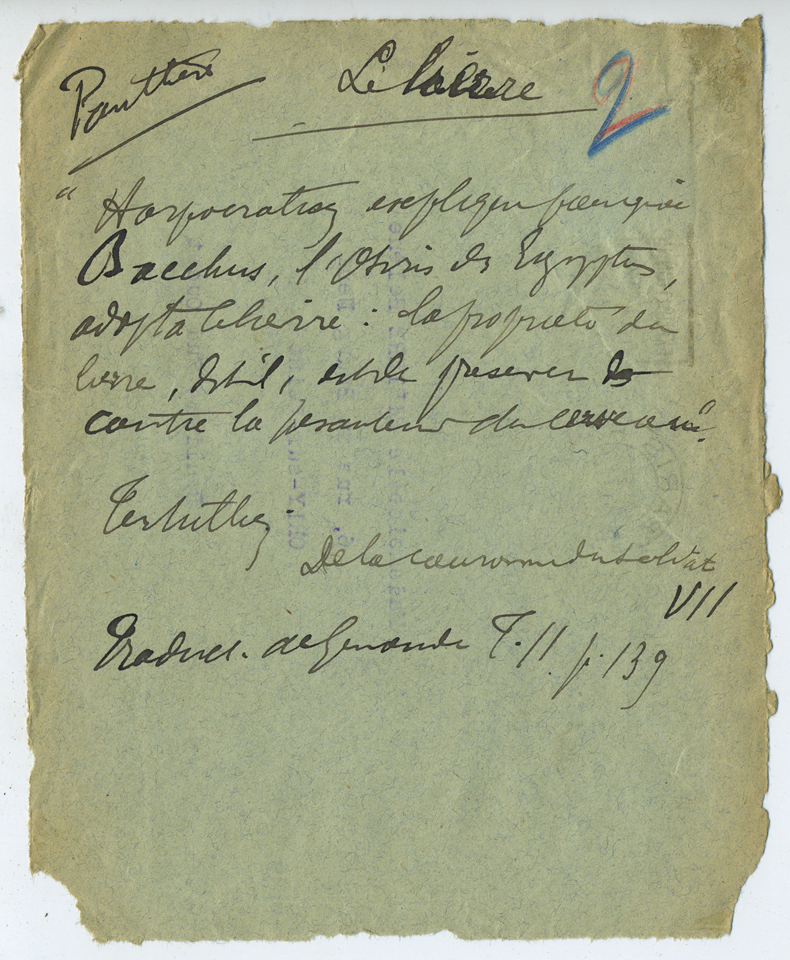 Panthère
Le lierre
2
" Harpocration explique pourquoi
Bacchus, l'Osiris des Egyptiens,
adopta le lierre : la propriété du
lierre, dit-il, est de préserver
contre la pesanteur du cerveau".
Tertullien
De la couronne du soldat
VII
Traduct. de Genoude T. II p. 139